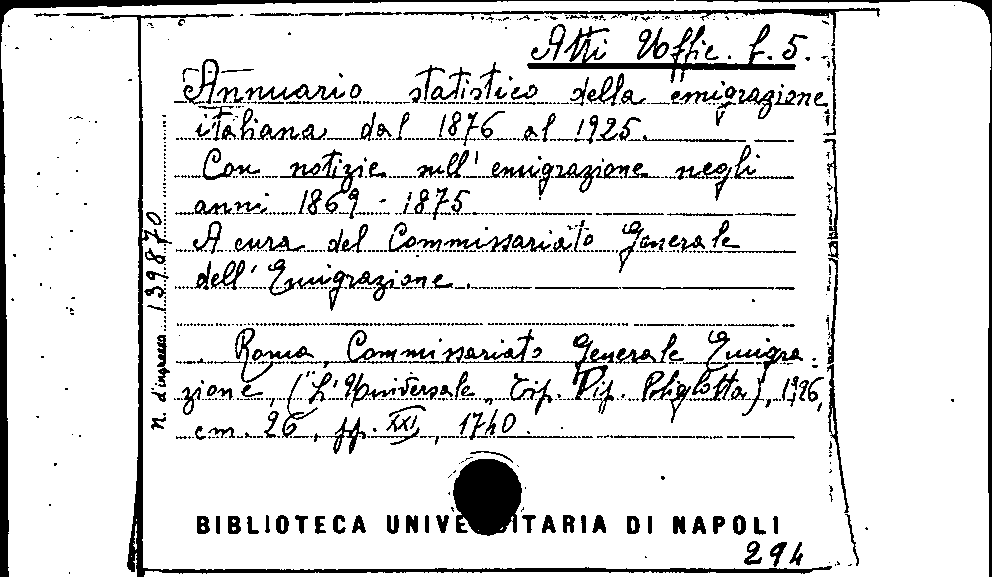 Atti Uffic. f. 5.
Annuario statistico della emigrazione
italiana dal 1876 al 1925.
Con notizie sull' emigrazione negli
anni 1869 - 1875
A cura del Commissariato Generale
dell' Emigrazione.
n. d'ingresso 139870
Roma, Commissariato Generale Emigra-
zione, ("L'Universale, Tip. Poliglotta), 1926,
cm. 26, pp. XXI, 1740.
BIBLIOTECA DI NAPOLI
294